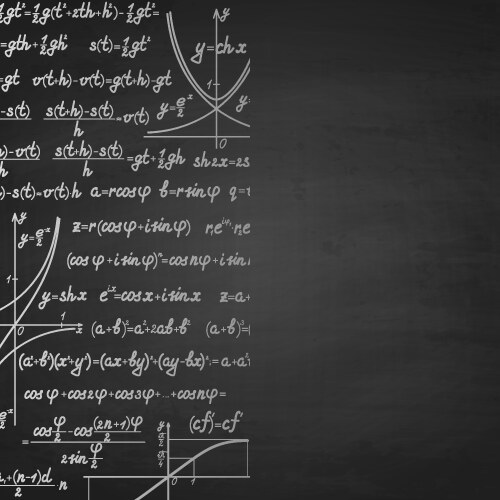 ½gt²=½g(t²+2th+h²)-½gt²=
=gth+½gh² s(t)=½gt²
=gt v(t+h)-v(t)=g(t+h)-gt
y=ch x
-s(t) s(t+h)-s(t)/h =v(t) y=e⁻ˣ/2
)-v(t)/h s(t+h)-s(t)/h =gt+½gh sh2x=2s
)-s(t)=v(t)·h a=rcosφ b=rsinφ q=
z=r(cosφ+isinφ)
y=eˣ/2
(cosφ+isinφ)ⁿ=cosnφ+isin
y=shx eⁱˣ=cosx+isinx z=a+
(a+b)²=a²+2ab+b² (a+b)³=
(a²+b²)(x²+y²)=(ax+by)²+(ay-bx)²
cosφ+cos2φ+cos3φ+...+cosnφ=
= cos φ/2 - cos (2n+1)φ/2 / 2sin φ/2 (cf)'=cf'
+(n-1)d/2 ·n